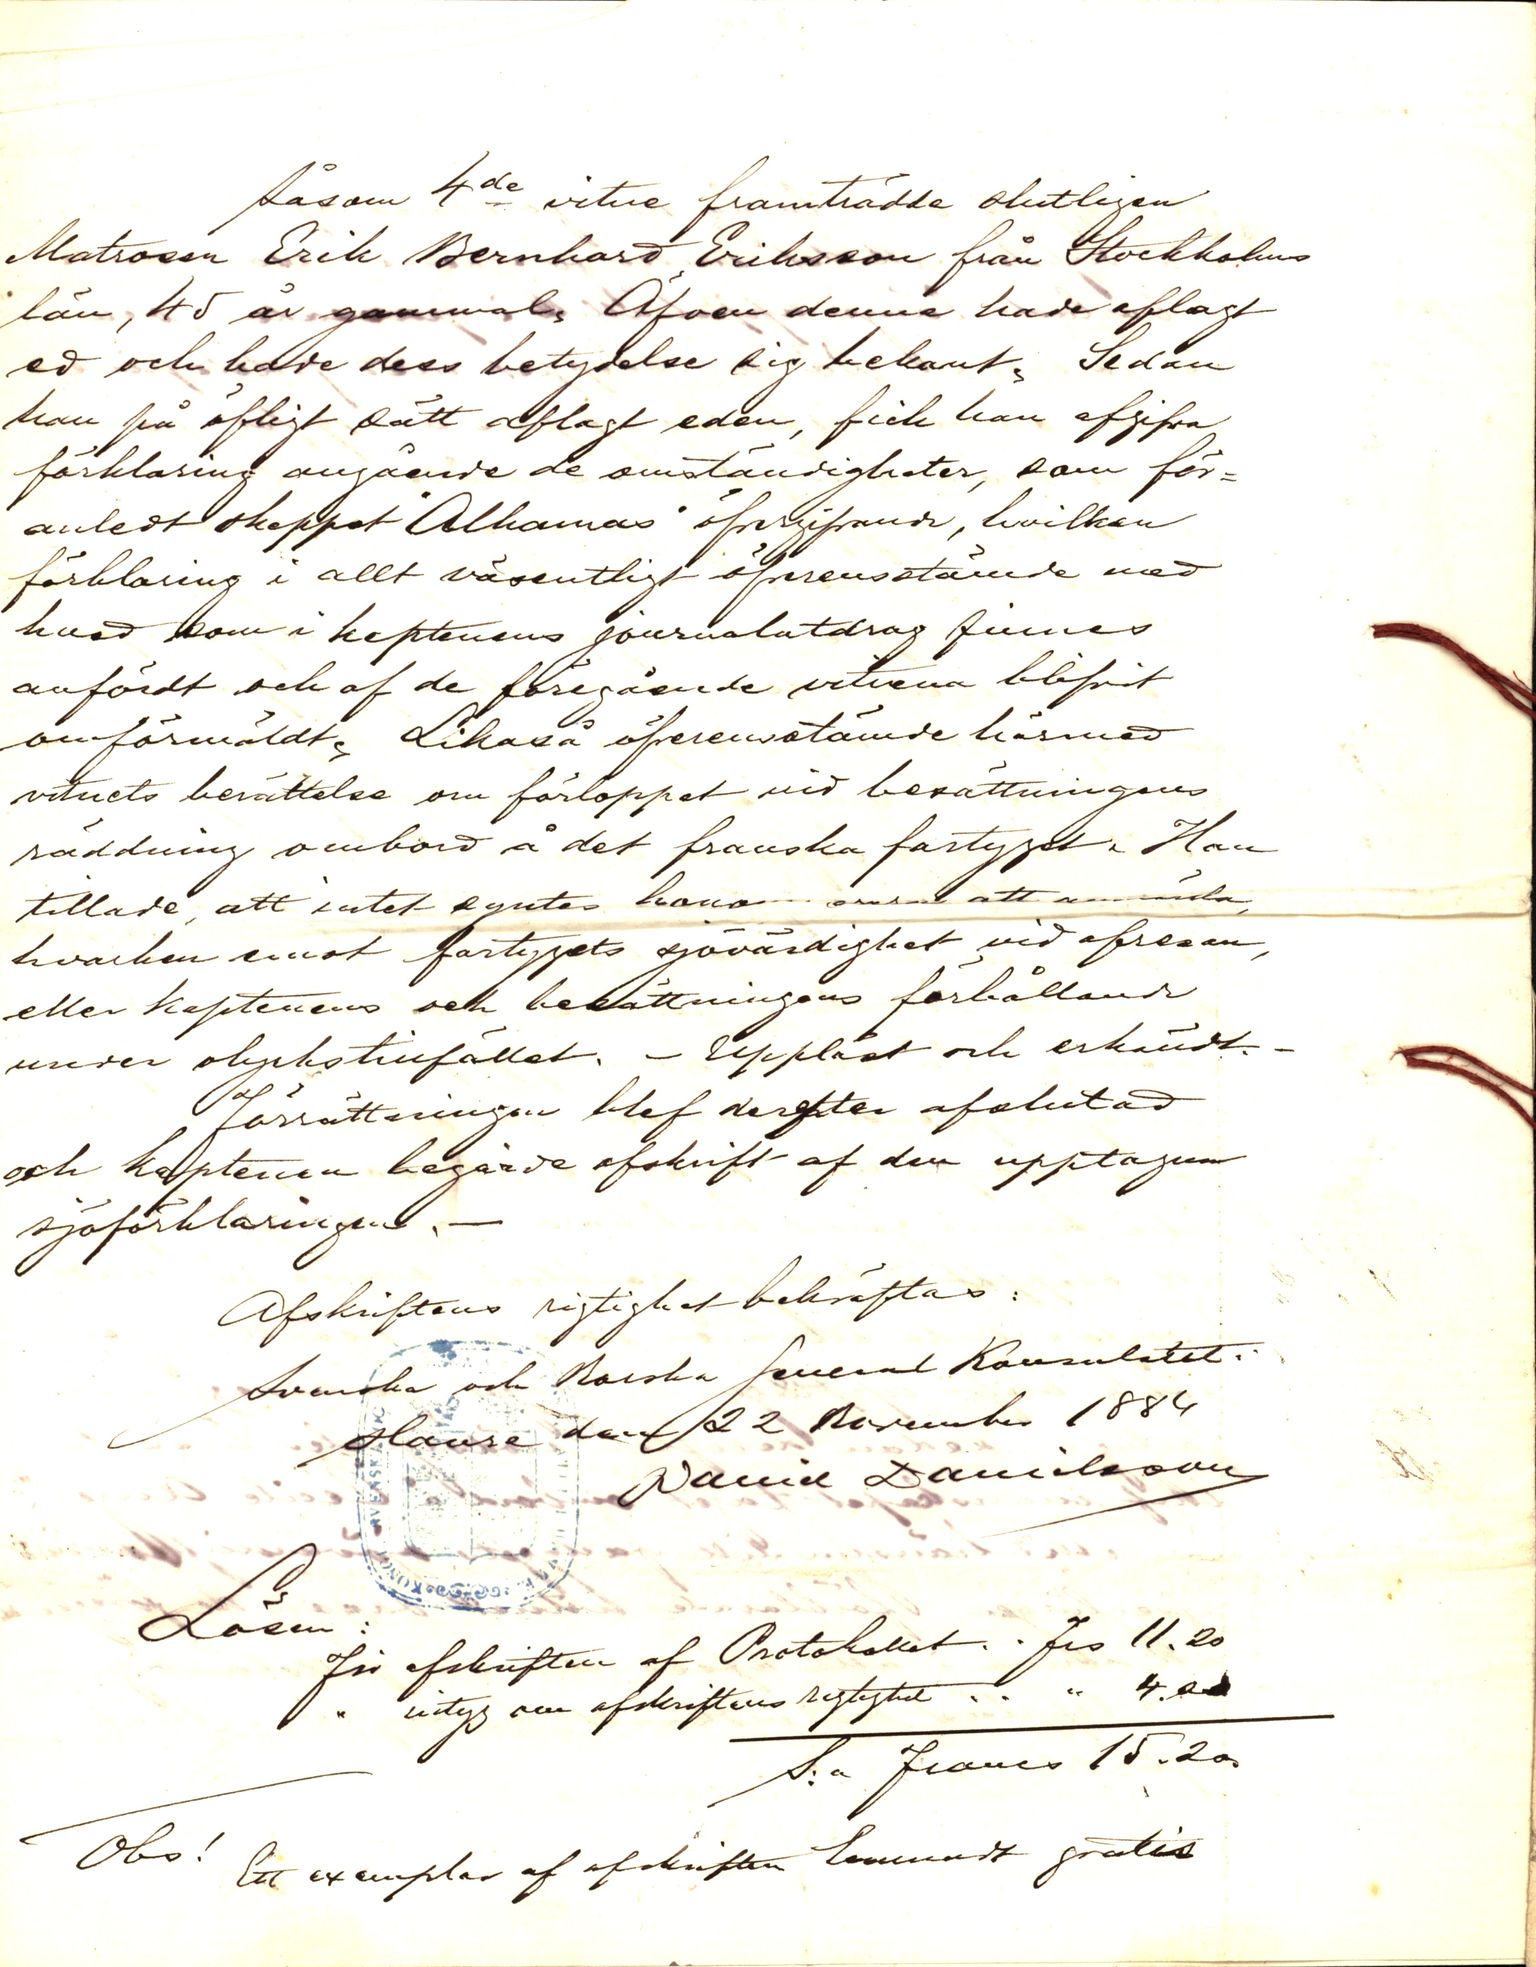 Såsom 4de vitne framträdde slutligen
Matrosen Erik Bernhard Eriksson från Stockholms
län, 45 år gammal. Äfven denne hade aflagt
ed och hade dess betydelse sig bekant. Sedan
han på öfligt sätt aflagt eden, fick han afgifva
förklaring angående de omständigheter, som för=
anledt skeppet "Alhamas" öfvergifvande, hvilken
förklaring i allt väsentligt öfverensstämde med
hvad som i kaptenens journalutdrag finnes
anfördt och af de föregående vitnena blifvit
omförmäldt. Likaså öfverensstämde härmed
vitnets berättelse om förloppet vid besättningens
räddning ombord å det franska fartyget. Han
tillade, att intet syntes honom vara att anmärka,
hvarken emot fartygets sjövärdighet vid afresan,
eller kaptenens och besättningens förhållande
under olyckstillfället. — Uppläst och erkändt. —
Förrättningen blef derefter afslutad
och kaptenen begärde afskrift af den upptagna
sjöförklaringen. —
Afskriftens rigtighet bekräftas:
Svenska och Norska General Konsulatet.
Havre den 22 November 1884
David Danielsson
Lösen:
För afskriften af Protokollet . . Frs 11.20
" intyg om afskriftens rigtighet . . " 4.00
S:a Francs 15.20
Obs! Ett exemplar af afskriften lemnadt gratis